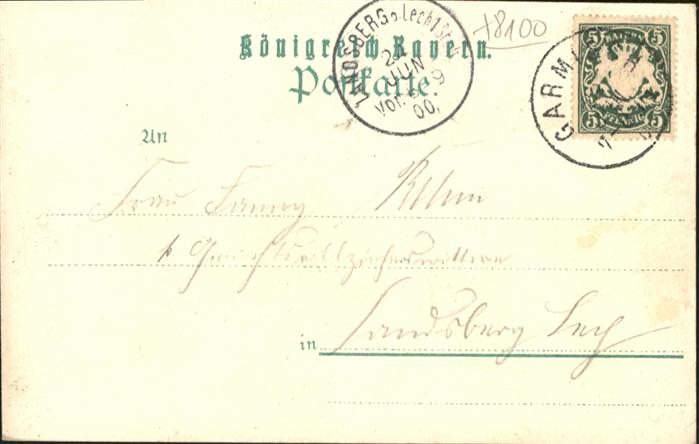 +8100
Königreich Bayern.
Postkarte.
LANDSBERG a. Lech 1
JUN
Vor. 8-9
00.
GARM
5 BAYERN 5
5 PFENNIG 5
An
Frau Fanny
Gerichtsvollzieherswittwe
in Landsberg Lech